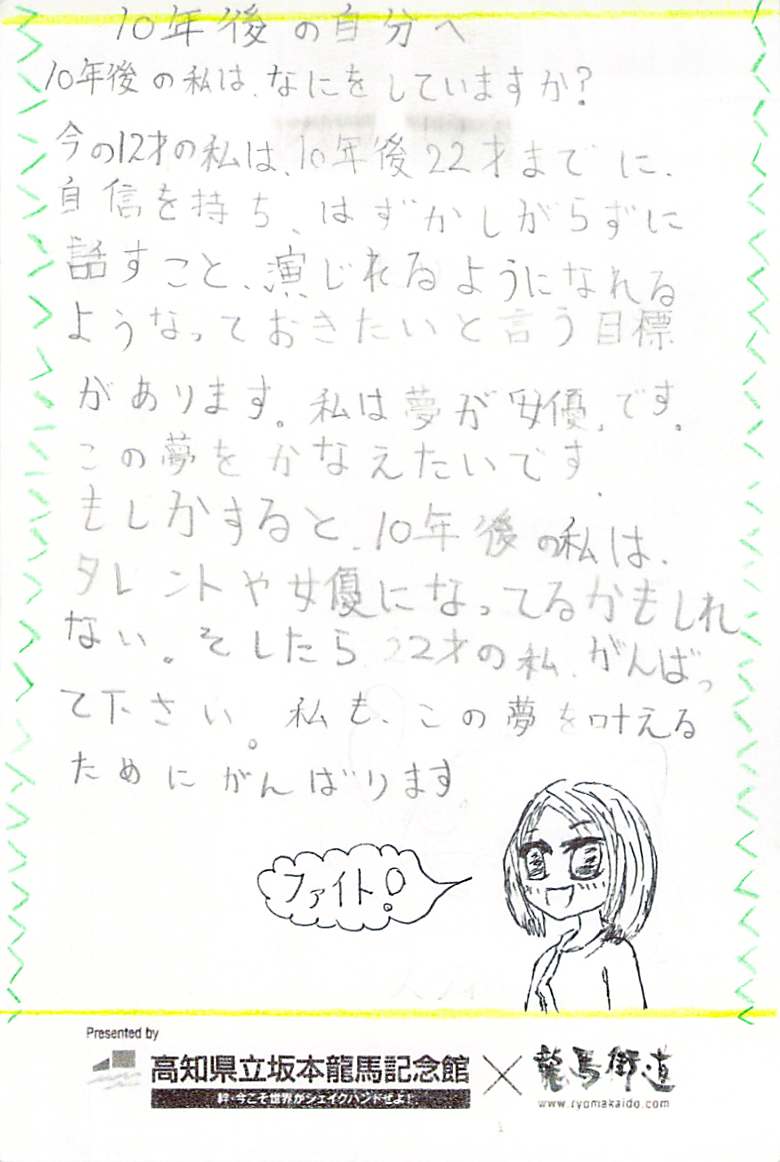 10年後の自分へ
10年後の私は、なにをしていますか?
今の12才の私は、10年後22才までに、
自信を持ち、はずかしがらずに
話すこと、演じれるようになれる
ようなっておきたいと言う目標
があります。私は夢が女優。です。
この夢をかなえたいです.
もしかすると、10年後の私は、
タレントや女優になってるかもしれ
ない。そしたら22才の私、がんばっ
て下さい。私も、この夢を叶える
ためにがんばります
ファイト!
Presented by
高知県立坂本龍馬記念館×龍馬街道
絆・今こそ世界がシェイクハンドぜよ!
www.ryomakaido.com